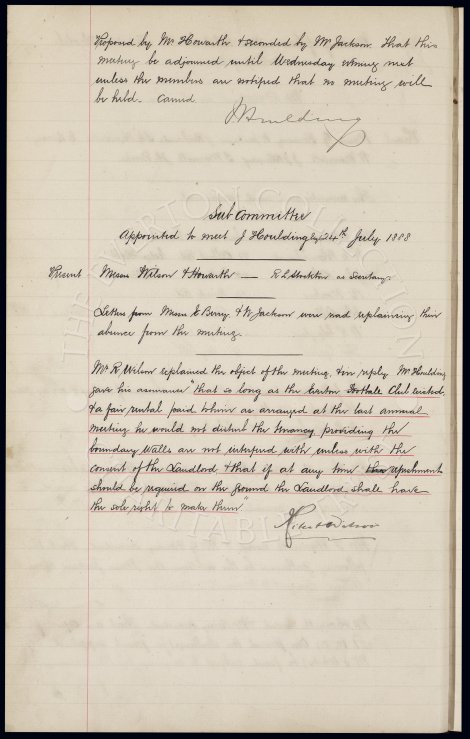 Proposed by Mr Howarth & seconded by Mr Jackson. That this
meeting be adjourned until Wednesday evening next
unless the members are notified that no meeting will
be held. Carried
J Houlding
Sub Committee
Appointed to meet J Houlding Esq 24th July 1888
Present Messrs Wilson & Howarth — R L Stockton as Secretary.
Letters from Messrs E Berry & W Jackson were read explaining their
absence from the meeting.
Mr R. Wilson explained the object of the meeting, & in reply Mr Houlding
gave his assurance "that so long as the Everton Football Club existed,
& a fair rental paid him as arranged at the last annual
meeting he would not disturb the tenancy, providing the
boundary walls are not interfered with unless with the
consent of the Landlord & that if at any time refreshments
should be required on the ground the Landlord shall have
the sole right to make them"
Wilson
THE EVERTON COLLECTION
CHARITABLE TRUST